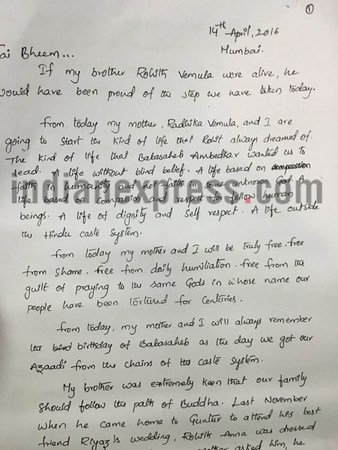 ①
14th April, 2016
Mumbai.
Jai Bheem...
If my brother Rohith Vemula were alive, he
would have been proud of the step we have taken today.
From today my mother, Radhika Vemula, and I are
going to start the kind of life that Rohit always dreamed of.
The kind of life that Babasaheb Ambedkar wanted us to
lead. A life without blind belief. A life based on
faith in humanity and not faith in an unknown God. A
life based on compassion & respect to fellow human
beings. A life of dignity and self respect. A life outside
the Hindu caste System.
indianexpress.com
From today my mother and I will be truly free. free
from Shame. free from daily humiliation. free from the
guilt of praying to the same Gods in whose name our
people have been tortured for Centuries.
From today, my mother and I will always remember
the birthday of Babasaheb as the day we got our
Azaadi from the chains of the caste System.
My brother was extremely keen that our family
Should follow the path of Buddha. Last November
when he came home to Guntur to attend his best
friend Riyaz's wedding, Rohith Anna was dressed
asked him, he